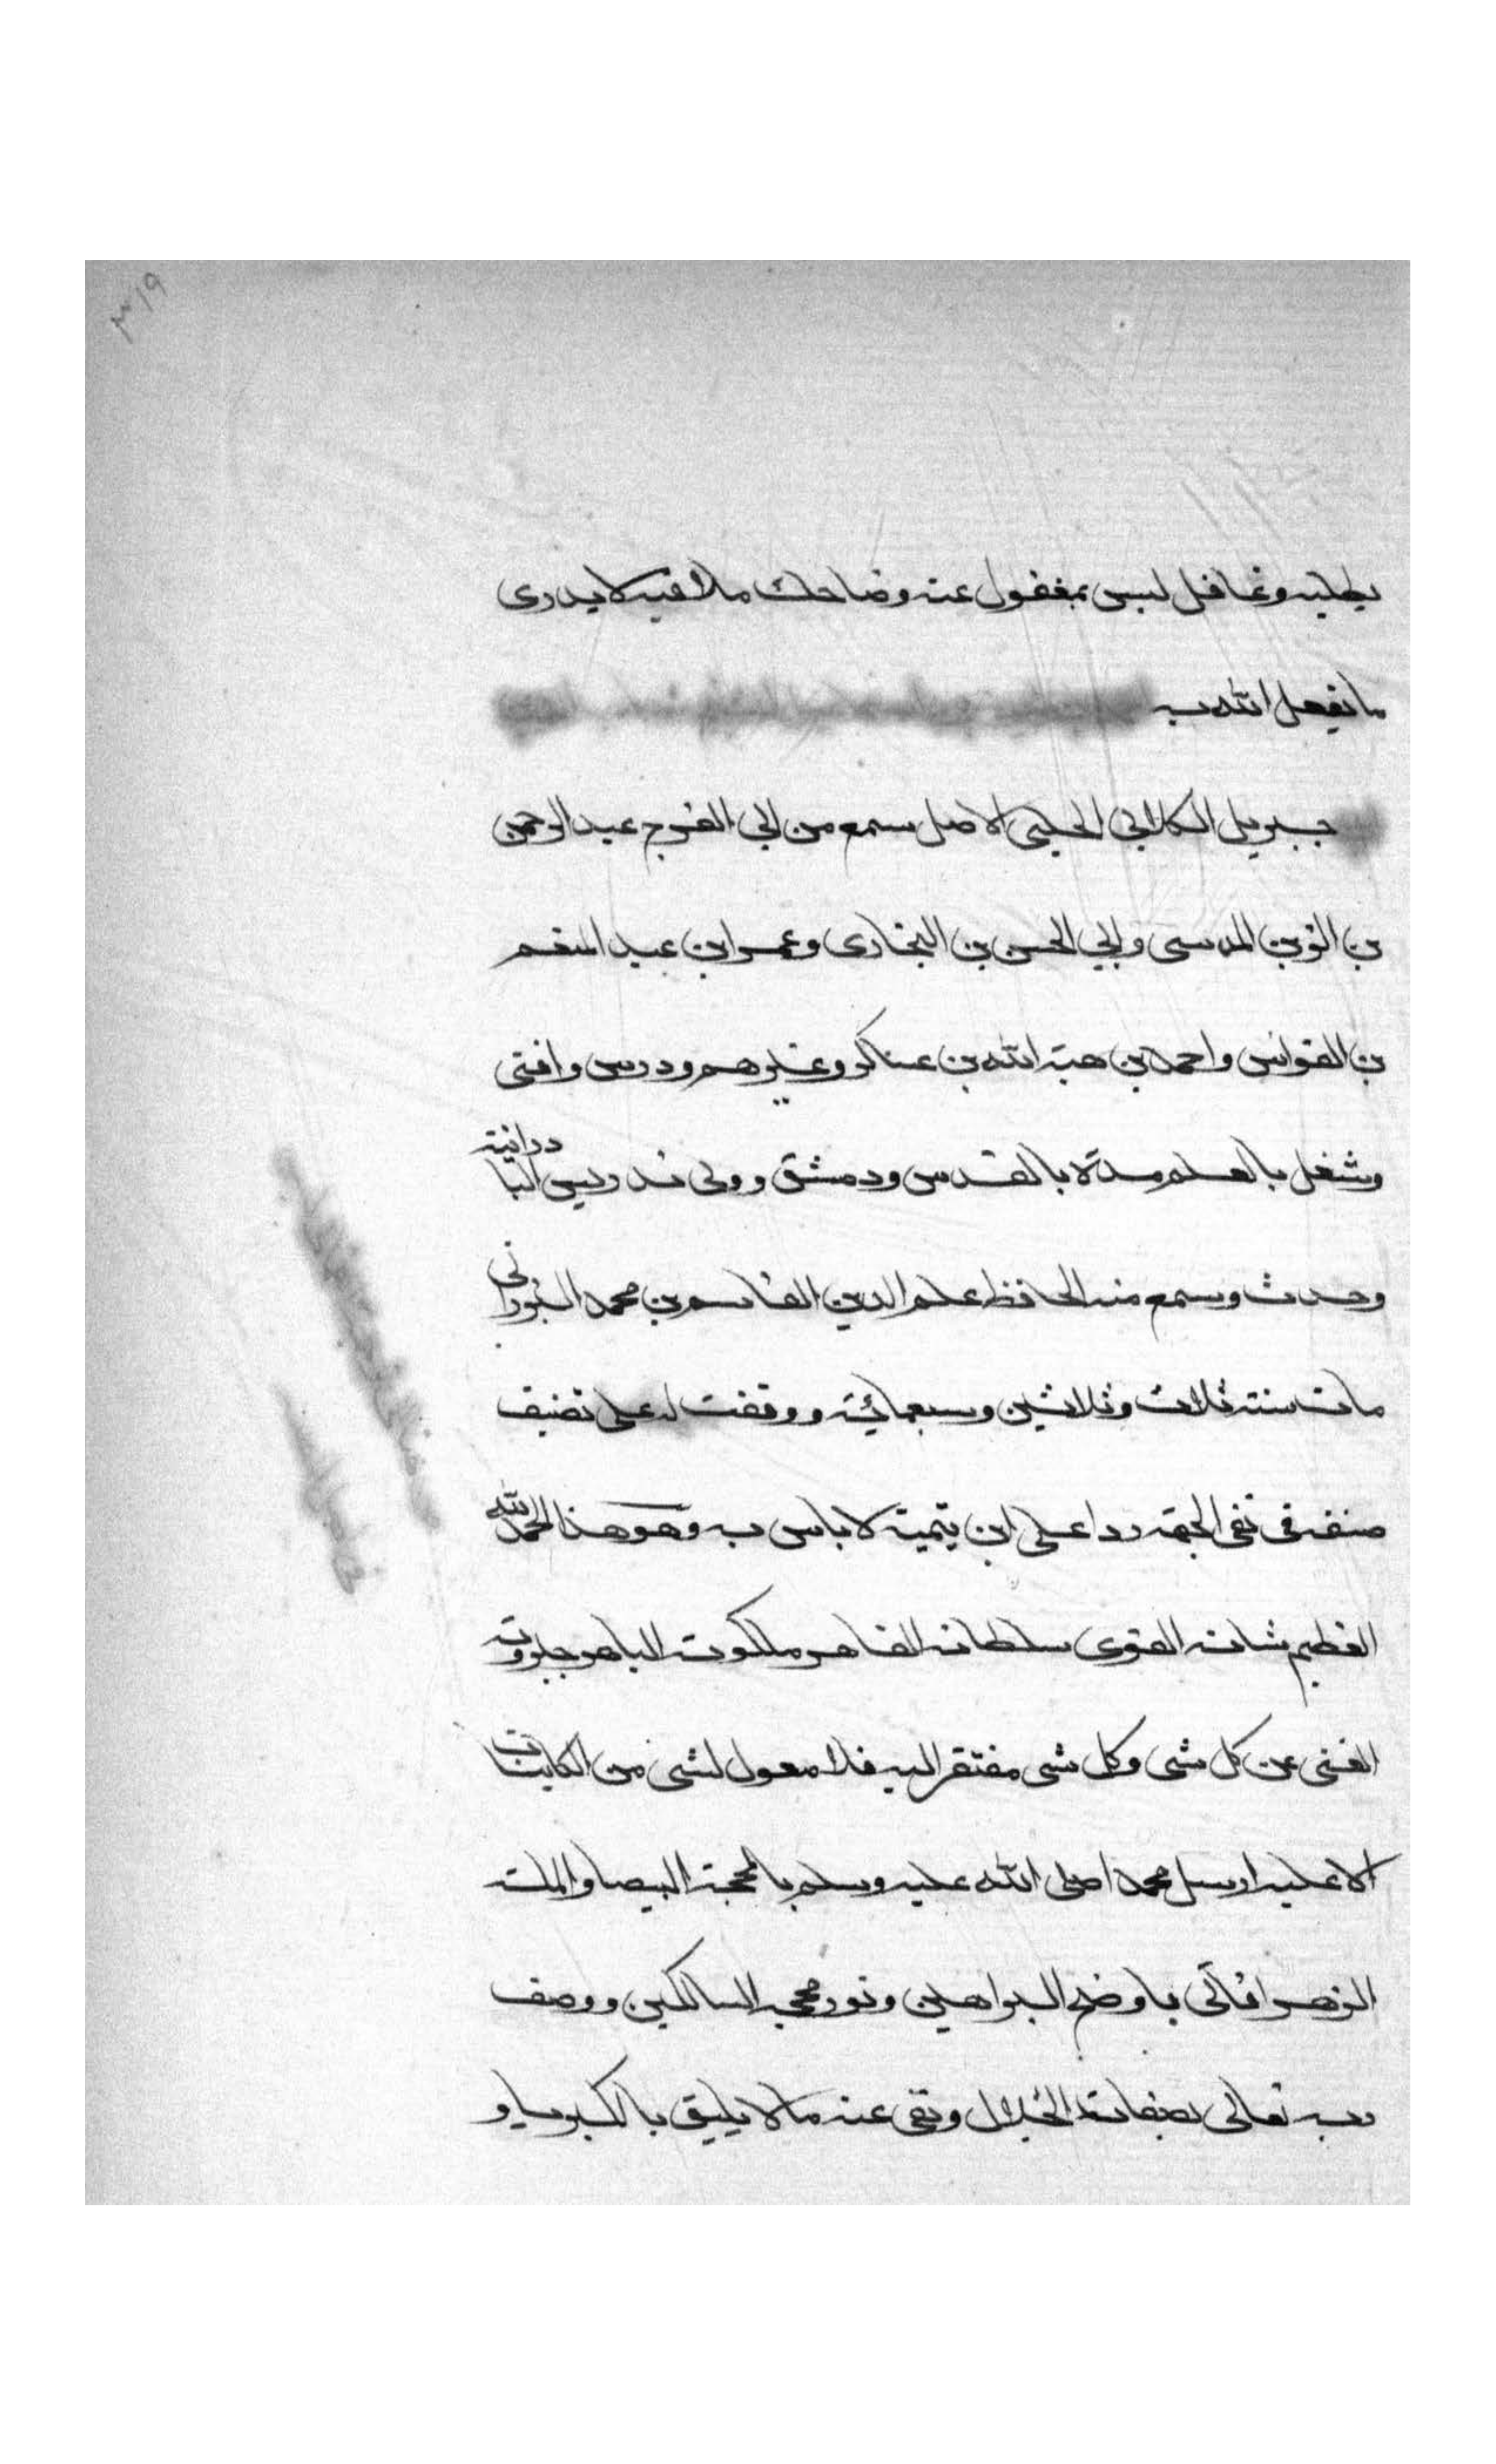 يطلبه وغافل ليس بمغفول عنه وضاحك ملافيه لا يدرى
ما يفعل الله به
جبريل الكلابي الحلبي الاصل سمع من ابي الفرج عبد الرحمن
بن الزين المقدسى وابي الحسن بن البخارى وعمر ابن عبد المنعم
بن القواس واحمد بن هبة الله بن عساكر وغيرهم ودرس وافتى
وشغل بالعلم مدة بالقدس ودمشق وولى تدريس البادرانية
وحدث وسمع منه الحافظ علم الدين القاسم بن محمد البرزانى
مات سنة ثلاث وثلاثين وسبعمائة ووقفت له على تصنيف
صنفه فى نفى الجهة ردا على ابن تيمية لا باس به وهو هذا الحمد لله
العظيم شانه القوى سلطانه القاهر ملكوته الباهر جبروته
الغنى عن كل شى وكل شى مفتقر اليه فلا معول لشى من الكاينات
الا عليه ارسل محمدا صلى الله عليه وسلم بالمحجة البيضا والملة
الزهرا فاتى باوضح البراهين ونور محجة السالكين ووصف
ربه تعالى بصفات الجلال ونفى عنه ما لا يليق بالكبريا و